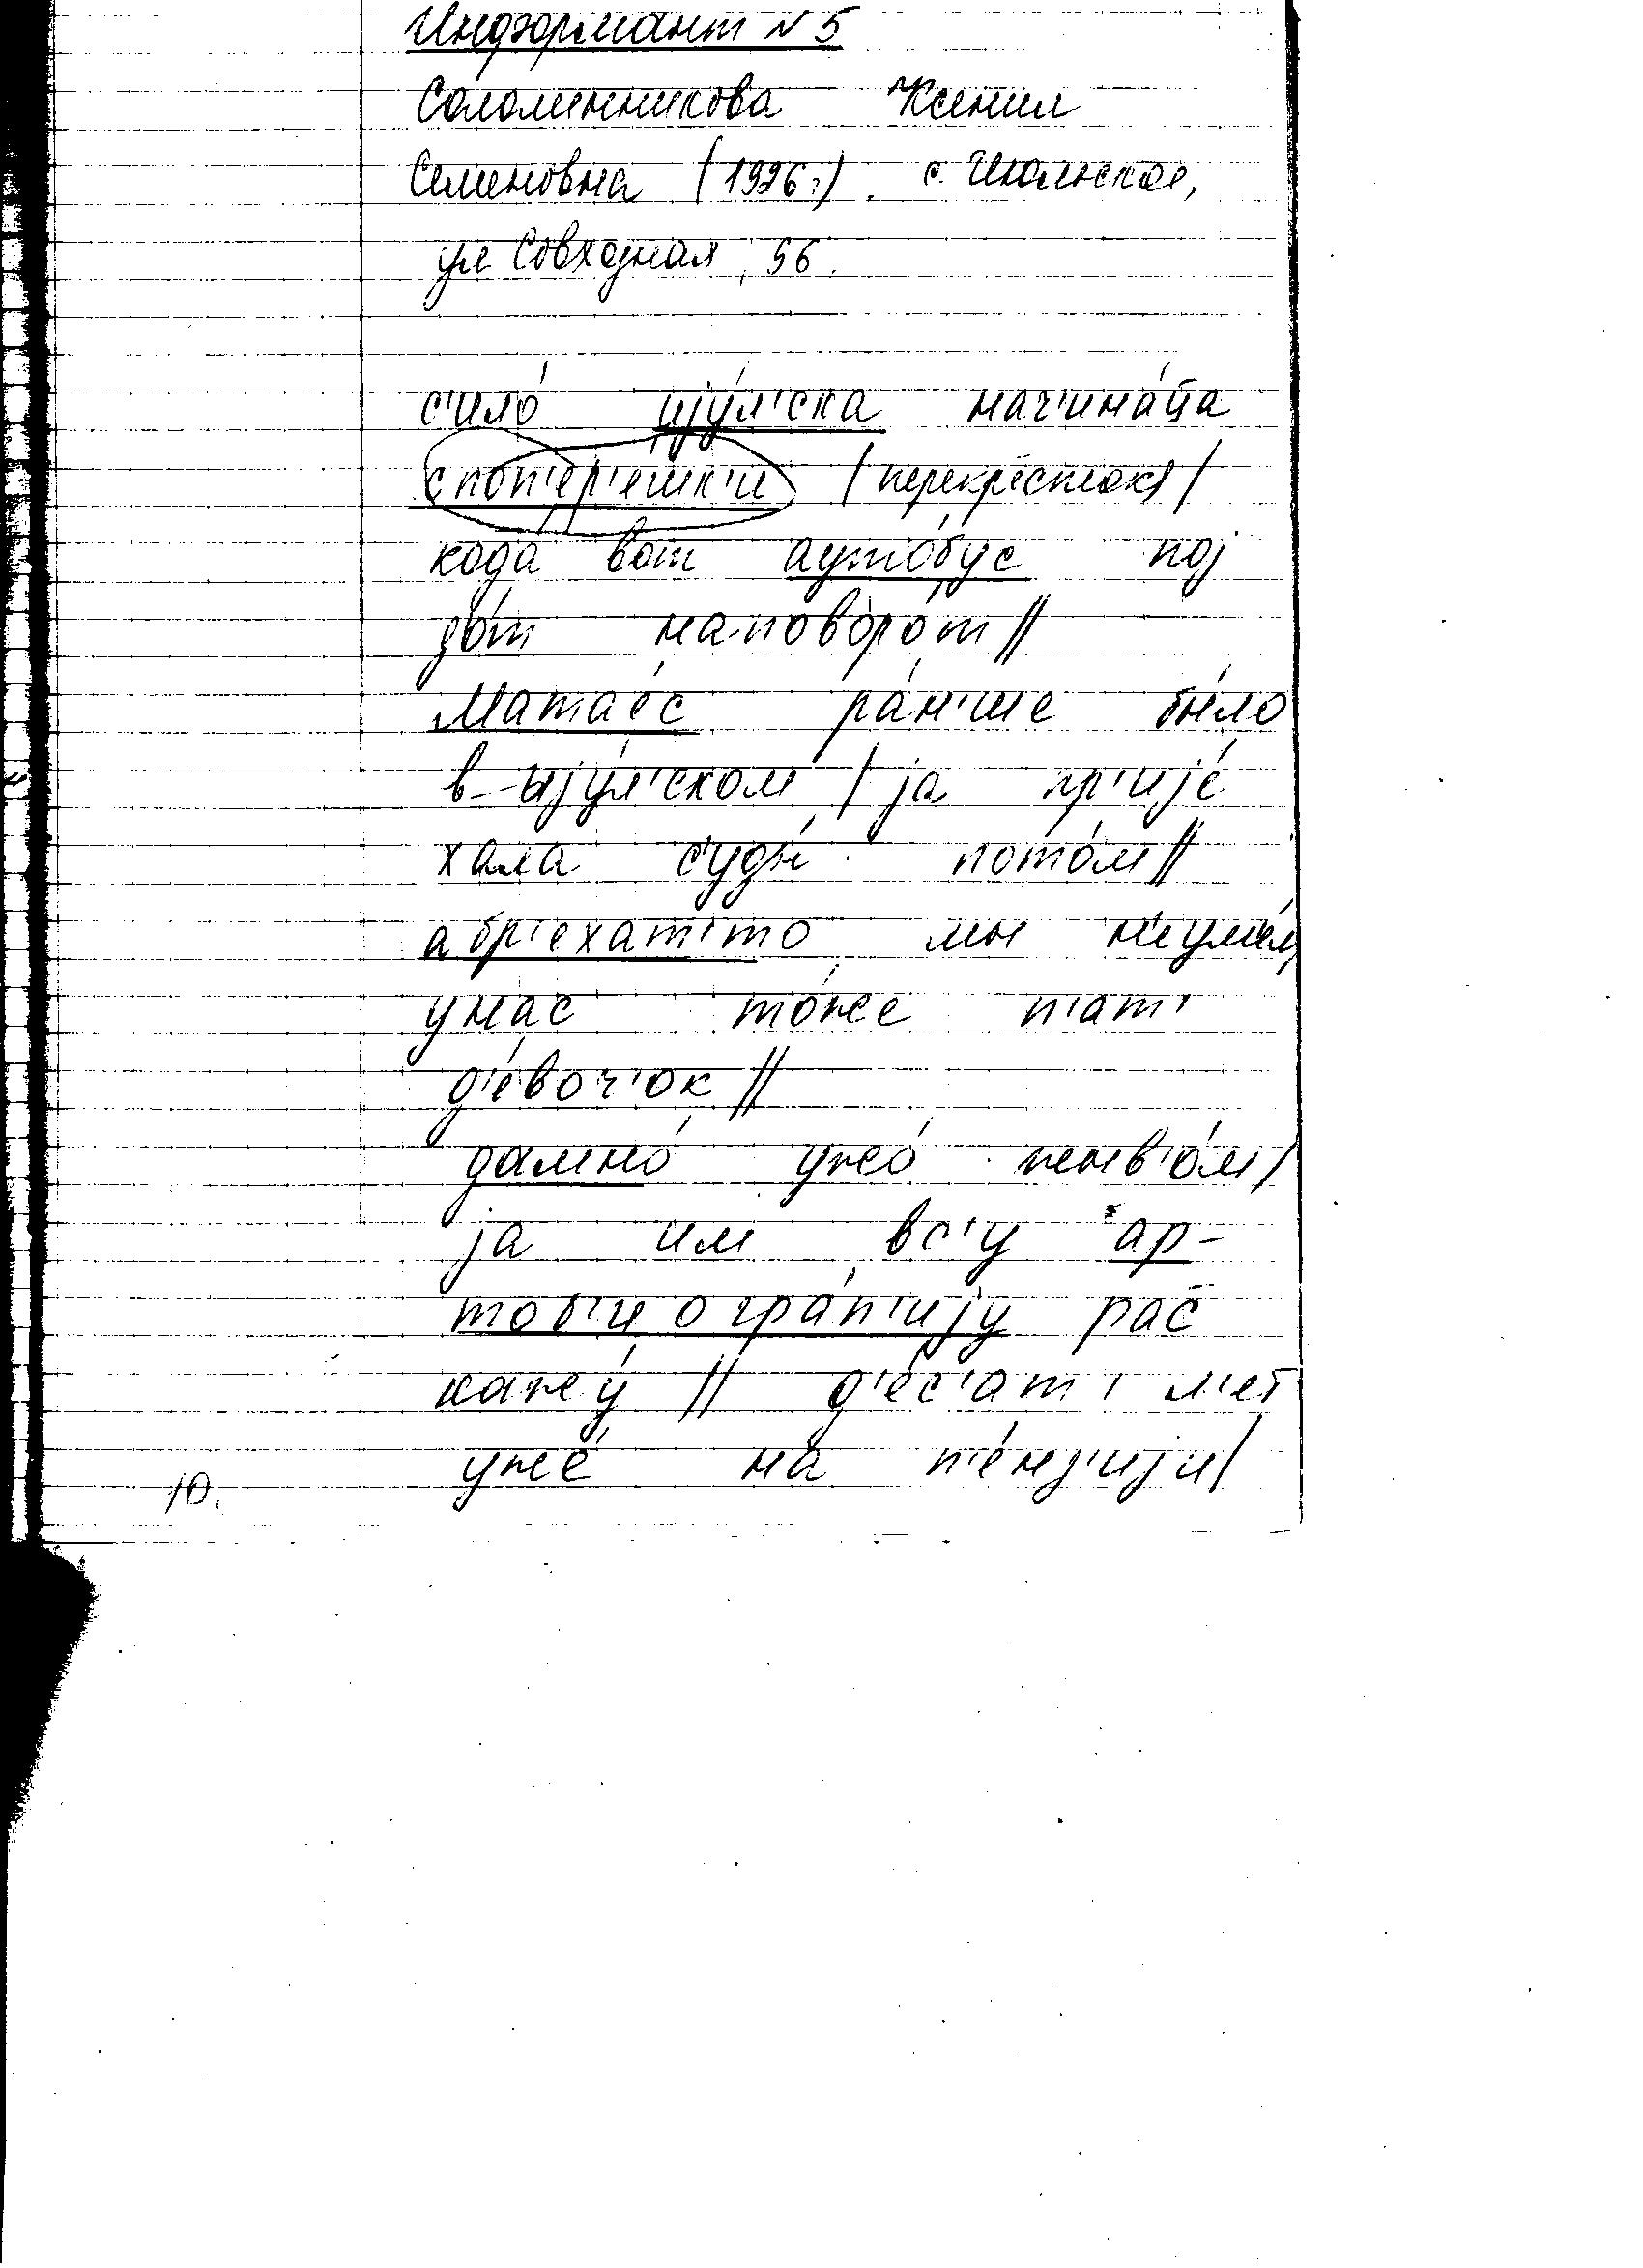 Информант N 5
Соломенникова Ксения
Семеновна (1926г) с. Июльское,
ул Совхозная, 56.
с'ило́ ијýл'ска нач'ина́ца
споп'ер'ешк'и /перекрёсток/
кода вот аутóбус пој
до́т на поворо́т //
Матаес ра́н'ше бы́ло
в-ыјýл'ском / ја пр'ијé
хала с'уды́ пото́м //
а бр'ехат'то мы н'иумéли
у нас то́же п'ат'
д'éвоч'ок //
дамно́ ужо́ жыв'о́м /
ја им вс'у ар-
тоб'иогра́п'ију рас
кажý // д'éс'ат' л'ет
ужé на п'éнз'ији /
10.